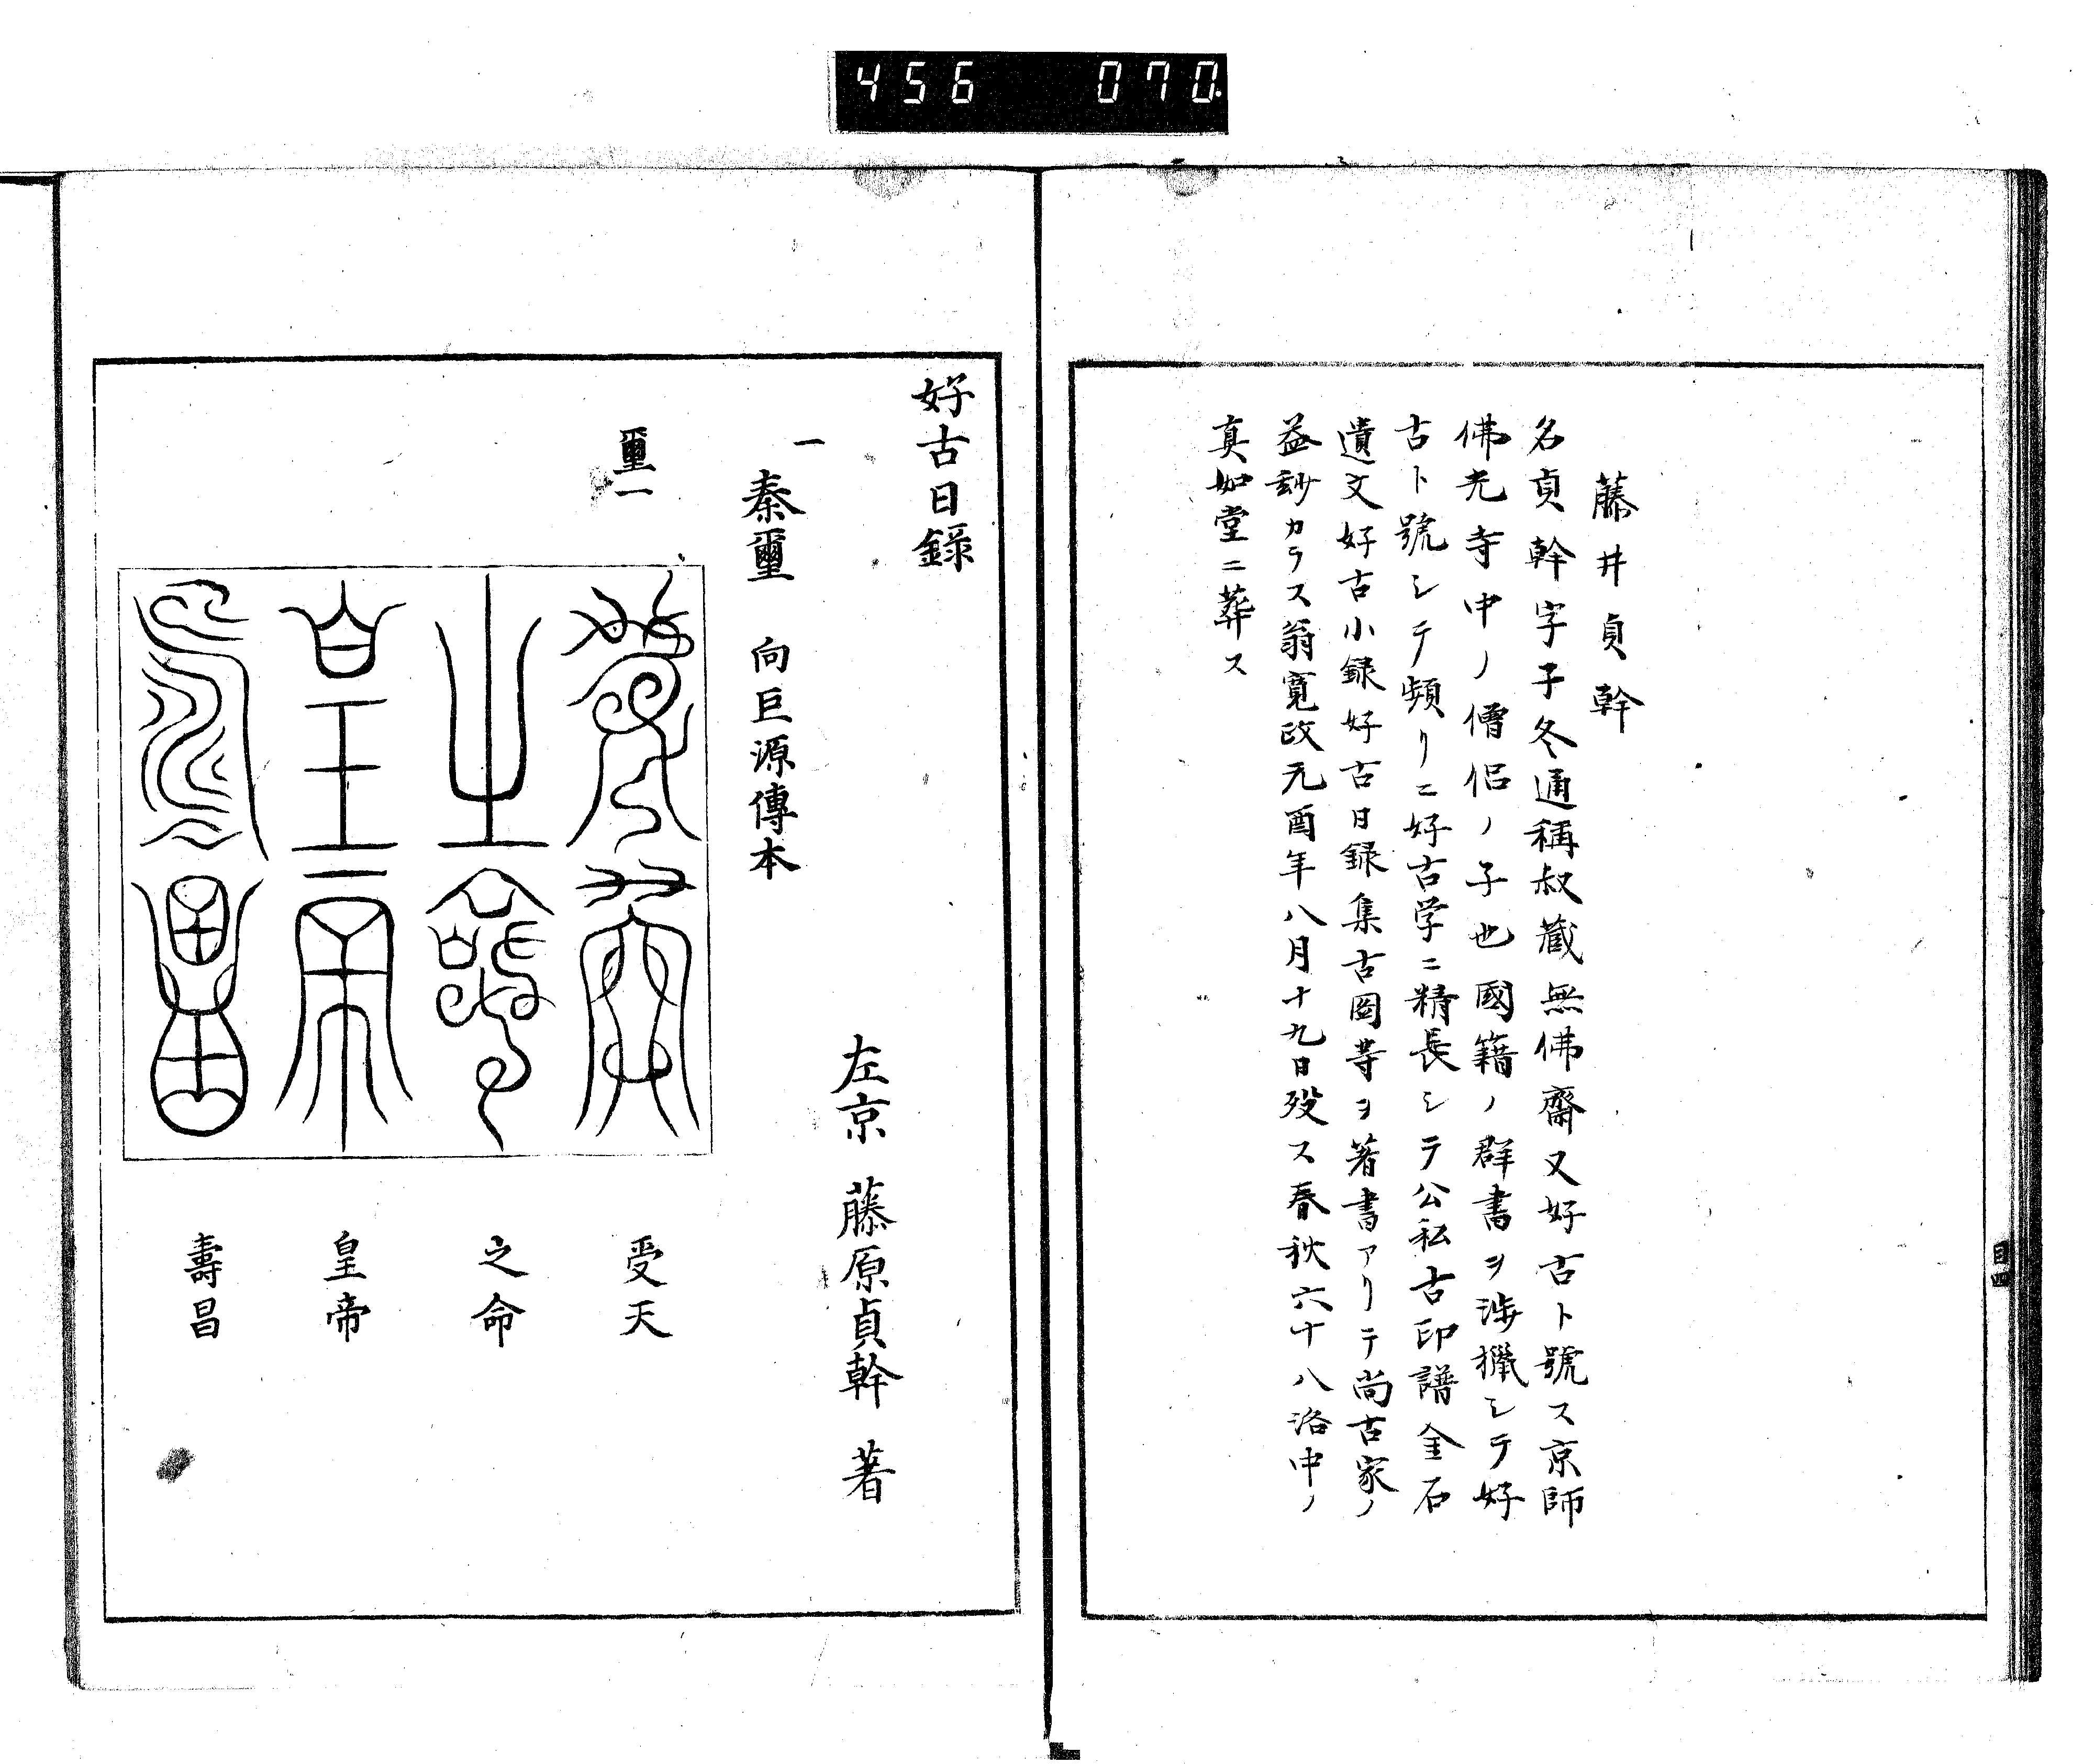 456 070
藤井貞幹
名貞幹字子冬通稱叔藏無佛齋又好古ト號ス京師
佛光寺中ノ僧侶ノ子也國籍ノ群書ヲ渉獵シテ好
古ト號シテ頻リニ好古学ニ精長シテ公私古印譜金石
遺文好古小録好古日録集古圖等ヲ著書アリテ尚古家ノ
益尠カラス翁寛政元酉年八月十九日歿ス春秋六十八洛中ノ
真如堂ニ葬ス
目四
好古日錄
左京 藤原貞幹 著
一
秦璽 向巨源傳本
璽一
受天
之命
皇帝
壽昌